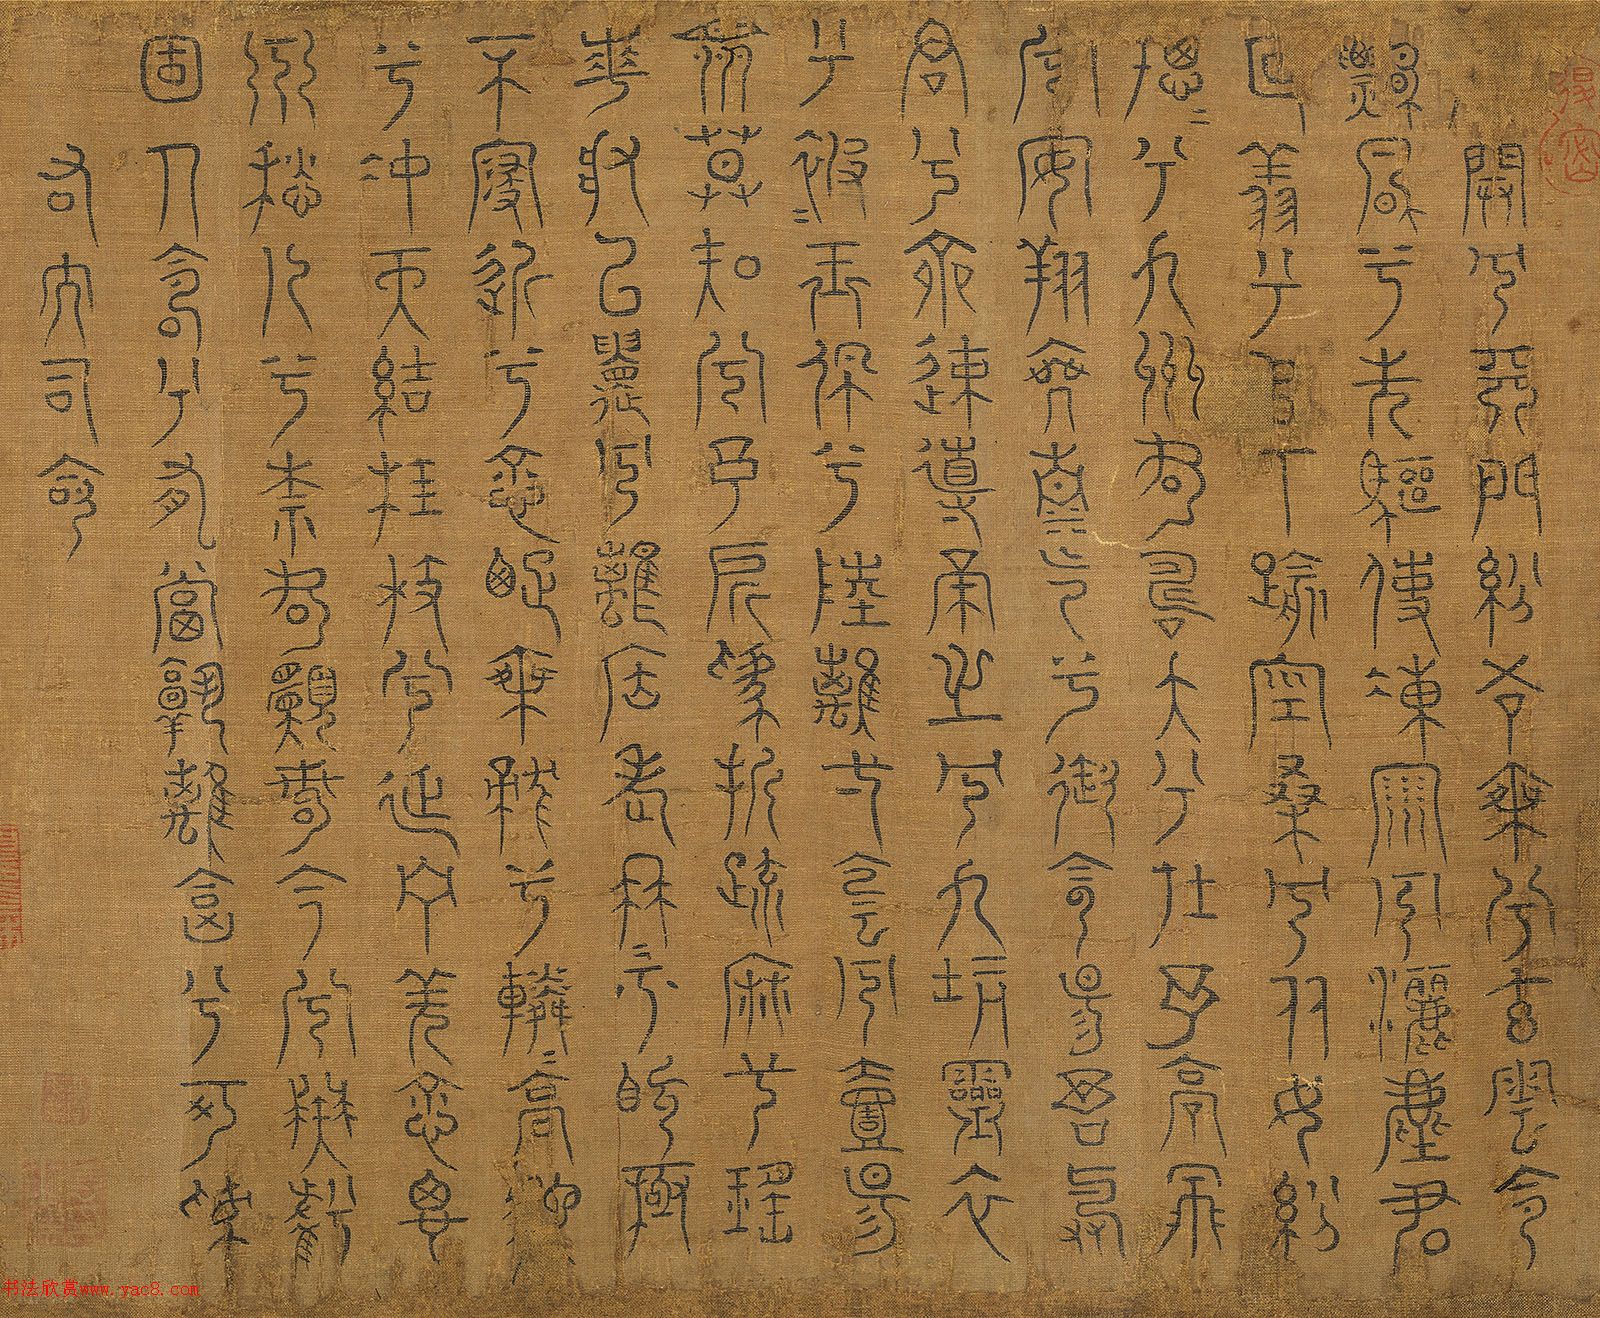 開兮天門紛吾乘兮玄雲令
飄風兮先驅使凍雨兮灑塵君
翔兮以下踰空桑兮从女紛
總=兮九州何壽夭兮在予高飛
兮安翔乘清氣兮御陰陽吾與
君兮齊速導帝之兮九坑靈衣
兮被=玉佩兮陸離一陰兮壹陽
衆莫知兮予所為折疏麻兮瑤
華將以遺兮離居老冉=既極
不寖近兮愈疏乘龍兮轔=高馳
兮沖天結桂枝兮延佇羌愈思
愁人兮柰何願今兮無虧
固人命兮有當離合兮可
右大司命
书法欣赏www.yac8.com